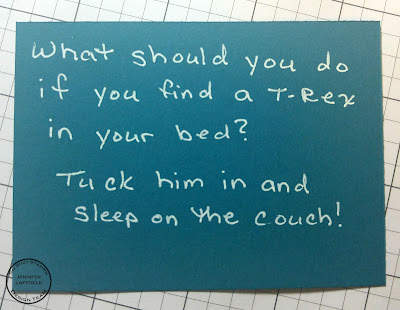 What should you do
if you find a T-Rex
in your bed?
Tuck him in and
sleep on the couch!
JENNIFER
DESIGN TEAM